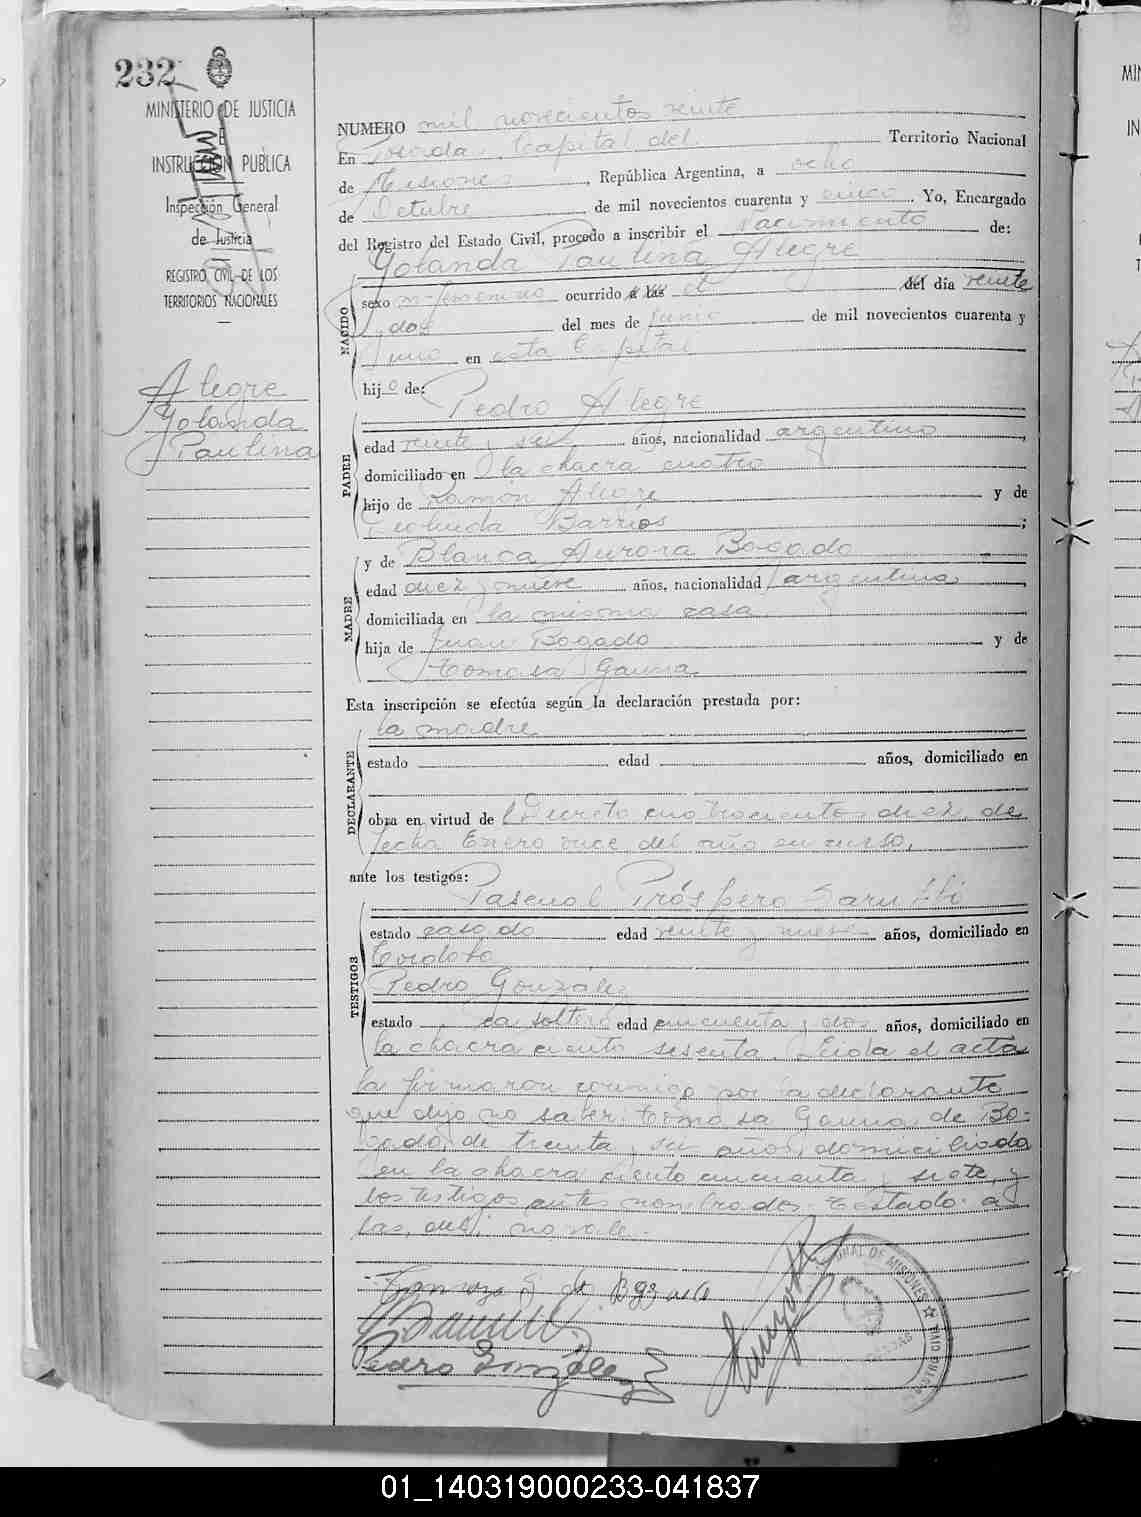 232
MINISTERIO DE JUSTICIA
E
INSTRUCCION PUBLICA
Inspección General
de Justicia
REGISTRO CIVIL DE LOS
TERRITORIOS NACIONALES
Alegre
Yolanda
Paulina
NUMERO mil novecientos veinte
En Posadas, Capital del Territorio Nacional
de Misiones, República Argentina, a ocho
de Octubre de mil novecientos cuarenta y cinco. Yo, Encargado
del Registro del Estado Civil, procedo a inscribir el Nacimiento de:
Yolanda Paulina Alegre
NACIDO
sexo femenino ocurrido a las el del día veinte
y dos del mes de Junio de mil novecientos cuarenta y
uno en esta Capital
hijo de:
Pedro Alegre
PADRE
edad veinte y seis años, nacionalidad argentino,
domiciliado en la chacra cuatro
hijo de Ramón Alegre y de
Teolinda Barrios;
MADRE
y de Blanca Aurora Bogado
edad diez y nueve años, nacionalidad argentina,
domiciliada en la misma casa
hija de Juan Bogado y de
Tomasa Gauna.
Esta inscripción se efectúa según la declaración prestada por:
la madre
DECLARANTE
estado edad años, domiciliado en
obra en virtud de Decreto cuatrocientos diez de
fecha Enero once del año en curso,
ante los testigos:
TESTIGOS
Pascual Próspero
estado casado edad veinte y nueve años, domiciliado en
Córdoba
Pedro González
estado soltero edad cincuenta y dos años, domiciliado en
la chacra ciento sesenta. Leida el acta
la firmaron conmigo por la declarante
que dijo no saber: Tomasa Gauna de Bo-
gado, de treinta y seis años, domiciliada
en la chacra ciento cincuenta y siete, y
los testigos antes nombrados. Testado: a
las, del, no vale.-
Pedro González
NAL DE MISIONES
POSADAS
01_140319000233-041837